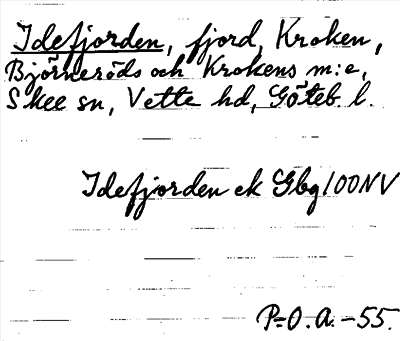 Idefjorden, fjord, Kroken,
Björneröds och Krokens m:e,
Skee sn, Vette hd, Göteb. l.
Idefjorden ek Gbg 100 NV
P-O.A. -55.